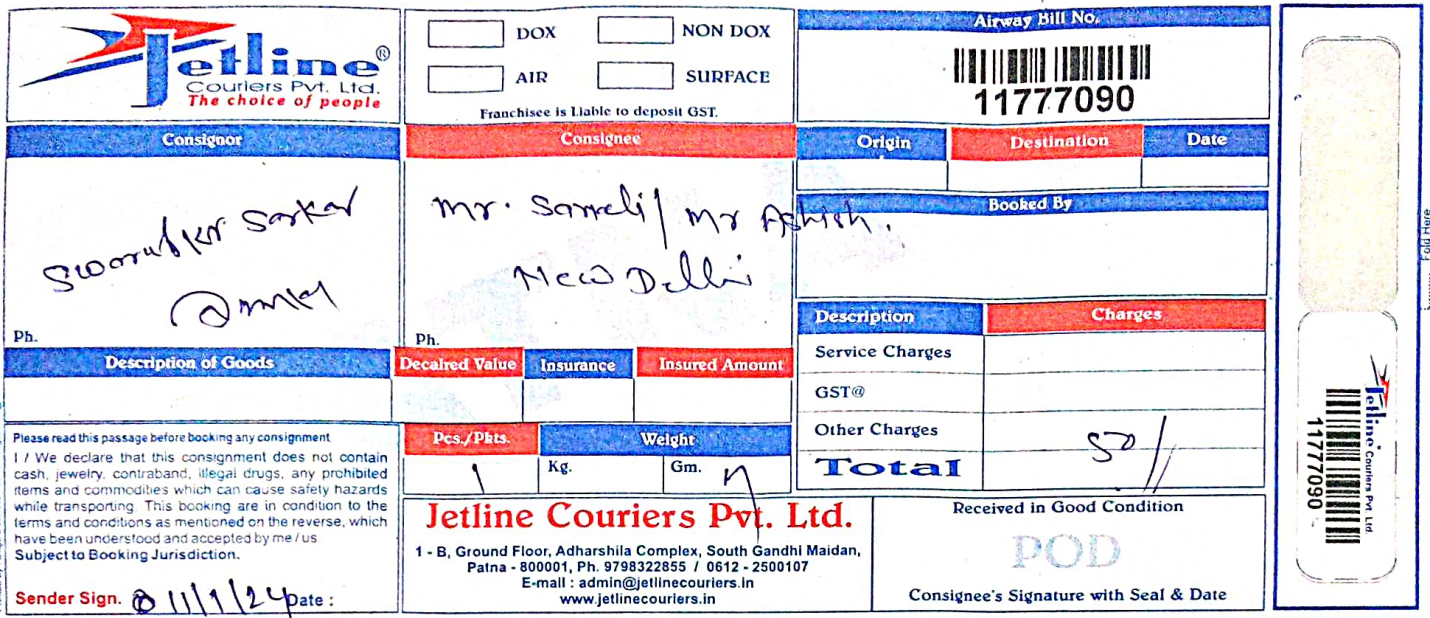 Jetline®
Couriers Pvt. Ltd.
The choice of people
DOX
NON DOX
AIR
SURFACE
Franchisee is Liable to deposit GST.
Airway Bill No.
11777090
Consignor
Sarkar
Ph.
Consignee
Mr. / Mr Ashish.
New Delhi
Ph.
Origin
Destination
Date
Booked By
Description of Goods
Decalred Value
Insurance
Insured Amount
Description
Charges
Service Charges
GST@
Other Charges
Total
50/
Please read this passage before booking any consignment
I / We declare that this consignment does not contain
cash, jewelry, contraband, illegal drugs, any prohibited
items and commodities which can cause safety hazards
while transporting. This booking are in condition to the
terms and conditions as mentioned on the reverse, which
have been understood and accepted by me / us
Subject to Booking Jurisdiction.
Sender Sign. 11/1/24 Date :
Pcs./Pkts.
Weight
1
Kg.
Gm.
Jetline Couriers Pvt. Ltd.
1 - B, Ground Floor, Adharshila Complex, South Gandhi Maidan,
Patna - 800001, Ph. 9798322855 / 0612 - 2500107
E-mail : admin@jetlinecouriers.in
www.jetlinecouriers.in
Received in Good Condition
POD
Consignee's Signature with Seal & Date
Jetline® Couriers Pvt. Ltd.
11777090
Fold Here